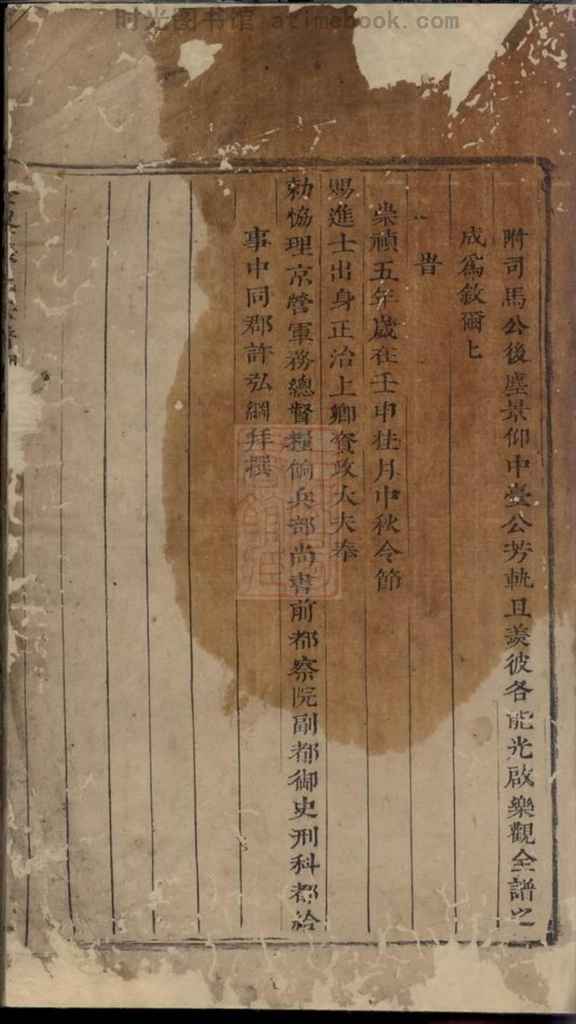 时光图书馆 atimebook.com
附司馬公後塵景仰中臺公芳軌且羨彼各能光啟樂觀全譜之
成爲敘爾上
旹
崇禎五年歲在壬申桂月中秋令節
賜進士出身正治上卿資政大夫奉
勅恊理京營軍務總督糧餉兵部尚書前都察院副都御史刑科都給
事中同郡許弘綱拜撰